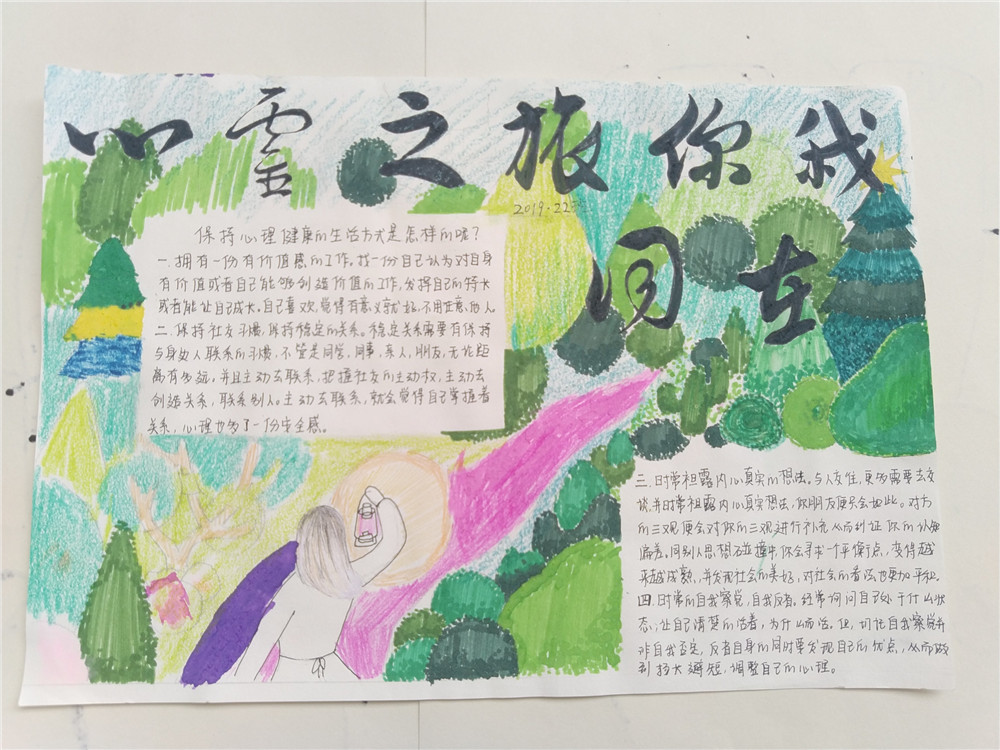 心灵之旅你我
同在
2019-22
保持心理健康的生活方式是怎样的呢?
一.拥有一份有价值感的工作。找一份自己认为对自身
有价值或者自己能够创造价值的工作,发挥自己的特长
或者能让自己成长。自己喜欢,觉得有意义就好,不用在意他人
二.保持社交习惯,保持稳定的关系。稳定关系需要有保持
与身边人联系的习惯,不管是同学,同事,亲人,朋友,无论距
离有多远,并且主动去联系,把握社交的主动权,主动去
创造关系,联系别人。主动去联系,就会觉得自己掌握着
关系,心理也多了一份安全感。
三.时常袒露内心真实的想法。与人交往,更多需要去交
谈,并时常袒露内心真实想法,你朋友便会如此。对方
的三观便会对你的三观进行补充从而纠正你的认知
偏差。同别人思想碰撞中你会寻求一个平衡点,变得越
来越成熟,并发现社会的美好,对社会的看法也更加平和。
四.时常的自我察觉,自我反省。经常询问自己处于什么状
态,让自己清楚的活着,为什么而活。但,切记自我察觉并
非自我否定,反省自身的同时要发现自己的优点,从而做
到扬长避短,调整自己的心理。